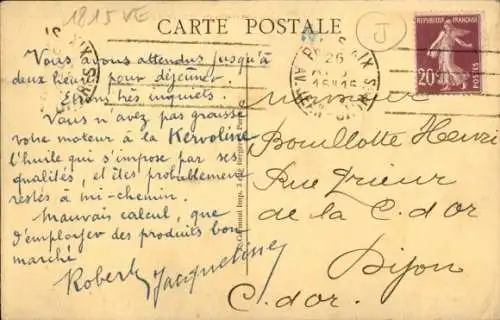 1815 VE
CARTE POSTALE
J
26
RÉPUBLIQUE FRANÇAISE
20c
POSTES
Vous avons attendus jusqu'à
deux heures pour déjeuner.
Etions très inquiets.
Vous n'avez pas graissé
votre moteur à la Kervoline
l'huile qui s'impose par ses
qualités, et êtes probablement
restés à mi-chemin.
Mauvais calcul, que
d'employer des produits bon
marché
Robert, Jacqueline
Monsieur
Bouillotte Henri
Rue
de la C. d'or
Dijon
C. d'or.